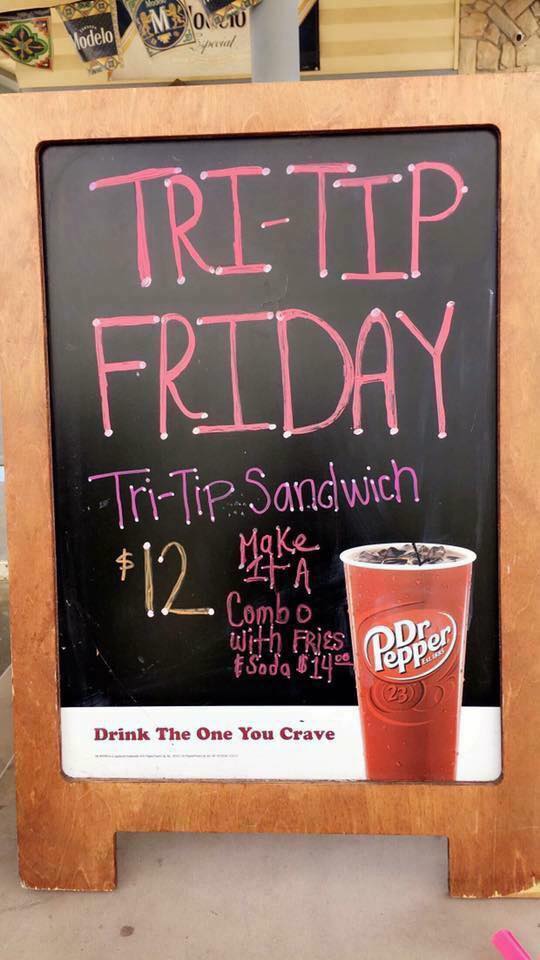 Modelo
Modelo
Especial
TRI-TIP
FRIDAY
Tri-Tip Sandwich
$12
Make
It A
Combo
with FRIES
& Soda $14⁰⁰
Dr
Pepper
EST. 1885
23
Drink The One You Crave